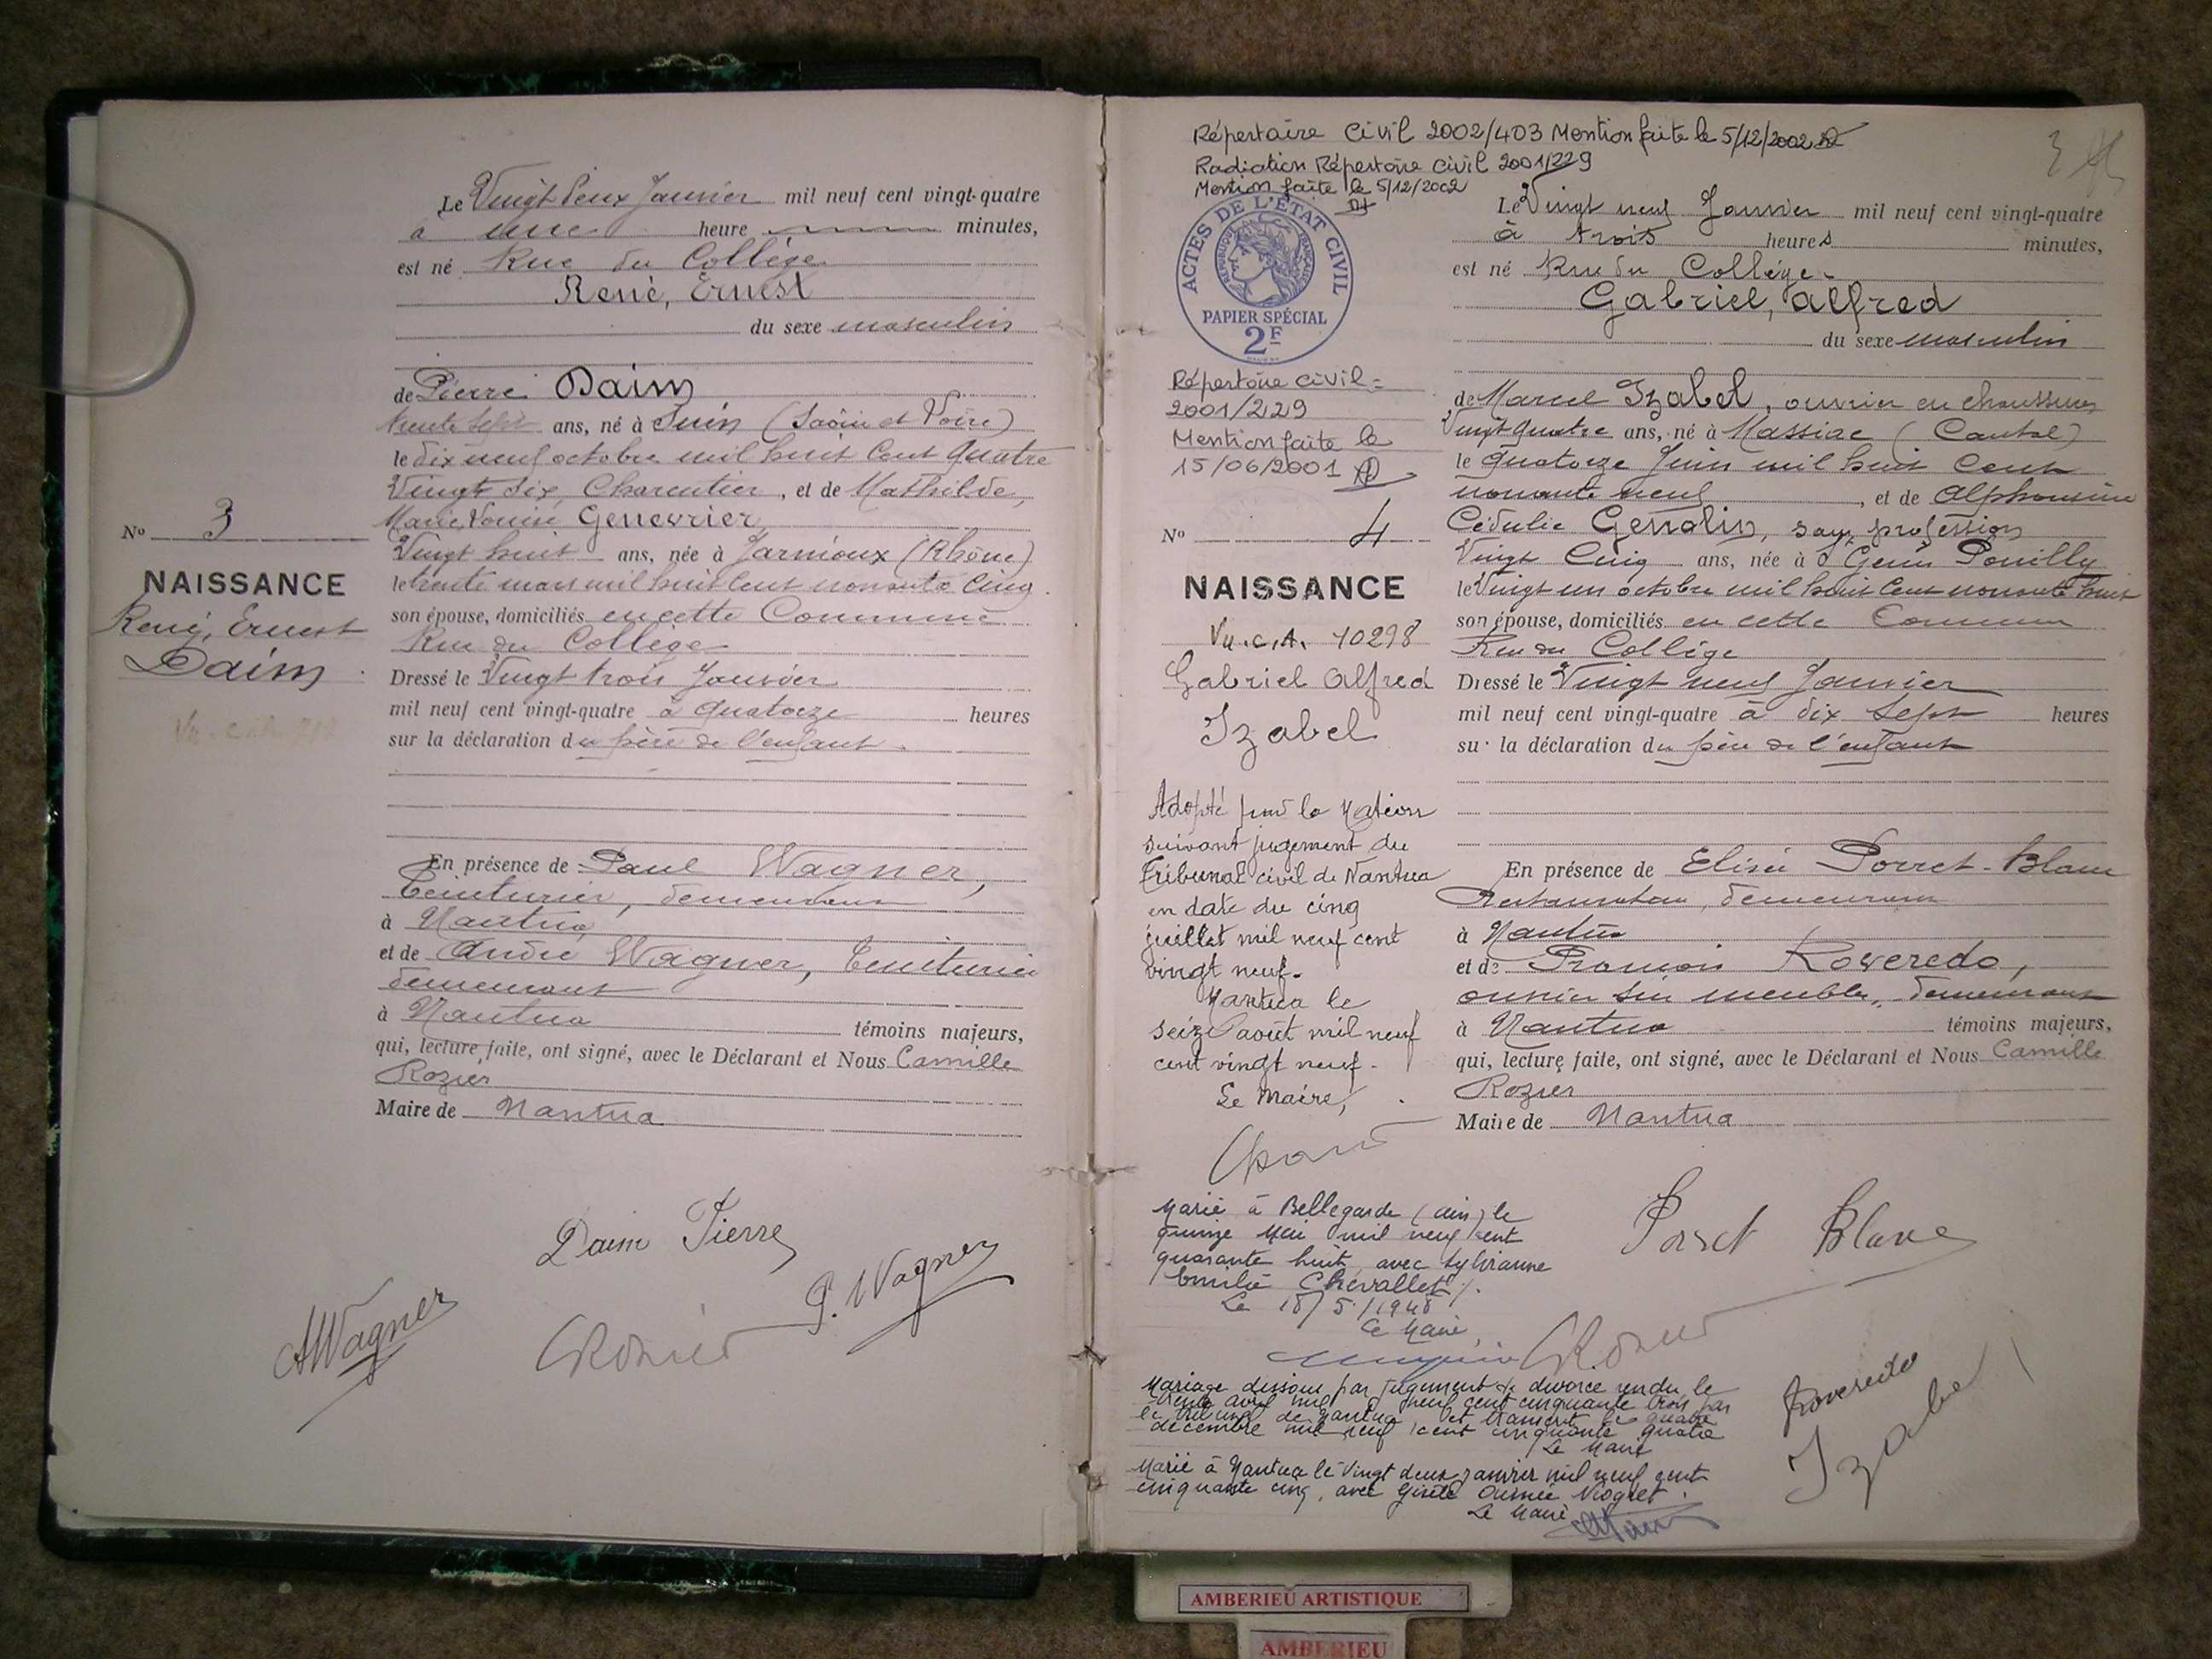 Le Vingt deux Janvier mil neuf cent vingt-quatre
à une heure minutes,
est né Rue du Collège
René, Ernest
du sexe masculin
de Pierre Daim
trente sept ans, né à Suin (Saône et Loire)
le dix neuf octobre mil huit cent quatre
Vingt six, Charcutier, et de Mathilde,
Marie, Louise Genevrier
Vingt huit ans, née à Jarnioux (Rhône)
le trente mars mil huit cent nonante cinq
son épouse, domiciliés en cette Commune
Rue du Collège
Dressé le Vingt trois Janvier
mil neuf cent vingt-quatre à quatorze heures
sur la déclaration du père de l'enfant.
En présence de Paul Wagner,
Teinturier, demeurant
à Nantua
et de André Wagner, Teinturier
demeurant
à Nantua témoins majeurs,
qui, lecture faite, ont signé, avec le Déclarant et Nous Camille
Rozier
Maire de Nantua
No 3
NAISSANCE
René, Ernest
Daim
Daim Pierre
AWagner
P. Wagner
CRozier
Répertoire Civil 2002/403 Mention faite le 5/12/2002
Radiation Répertoire Civil 2001/229
Mention faite le 5/12/2002
3
ACTES DE L'ÉTAT CIVIL
RÉPUBLIQUE FRANÇAISE
PAPIER SPÉCIAL
2F
Répertoire Civil =
2001/229
Mention faite le
15/06/2001
No 4
NAISSANCE
Vu.c.A. 10298
Gabriel Alfred
Izabel
Adopté par la Nation
suivant jugement du
Tribunal civil de Nantua
en date du cinq
juillet mil neuf cent
vingt neuf.
Nantua le
seize août mil neuf
cent vingt neuf.
Le Maire,
Marié à Bellegarde (ain) le
quinze Mai mil neuf cent
quarante huit avec Sylvianne
Emilie Chevallet
Le 18/5/1948
Le Maire,
Mariage dissous par jugement de divorce rendu le
trente avril mil neuf cent cinquante trois par
le tribunal de Nantua et transcrit le quatre
décembre mil neuf cent cinquante quatre
Le Maire
Marié à Nantua le Vingt deux janvier mil neuf cent
cinquante cinq, avec Gisèle Viognet.
Le Maire
Le Vingt neuf Janvier mil neuf cent vingt-quatre
à trois heures minutes,
est né Rue du Collège
Gabriel, Alfred
du sexe masculin
de Marcel Izabel, ouvrier en chaussures
Vingt quatre ans, né à Massiac (Cantal)
le quatorze Juin mil huit cent
nonante neuf, et de Alphonsine
Cédulie Genolin, sans profession
Vingt Cinq ans, née à St Genis Pouilly
le Vingt un octobre mil huit cent nonante huit
son épouse, domiciliés en cette Commune
Rue du Collège
Dressé le Vingt neuf Janvier
mil neuf cent vingt-quatre à dix sept heures
sur la déclaration du père de l'enfant
En présence de Elisée Porret-Blanc
Restaurateur, demeurant
à Nantua
et de François Roveredo,
ouvrier sur meubles, demeurant
à Nantua témoins majeurs,
qui, lecture faite, ont signé, avec le Déclarant et Nous Camille
Rozier
Maire de Nantua
Porret Blanc
CRozier
Roveredo
Izabel
AMBERIEU ARTISTIQUE
AMBERIEU